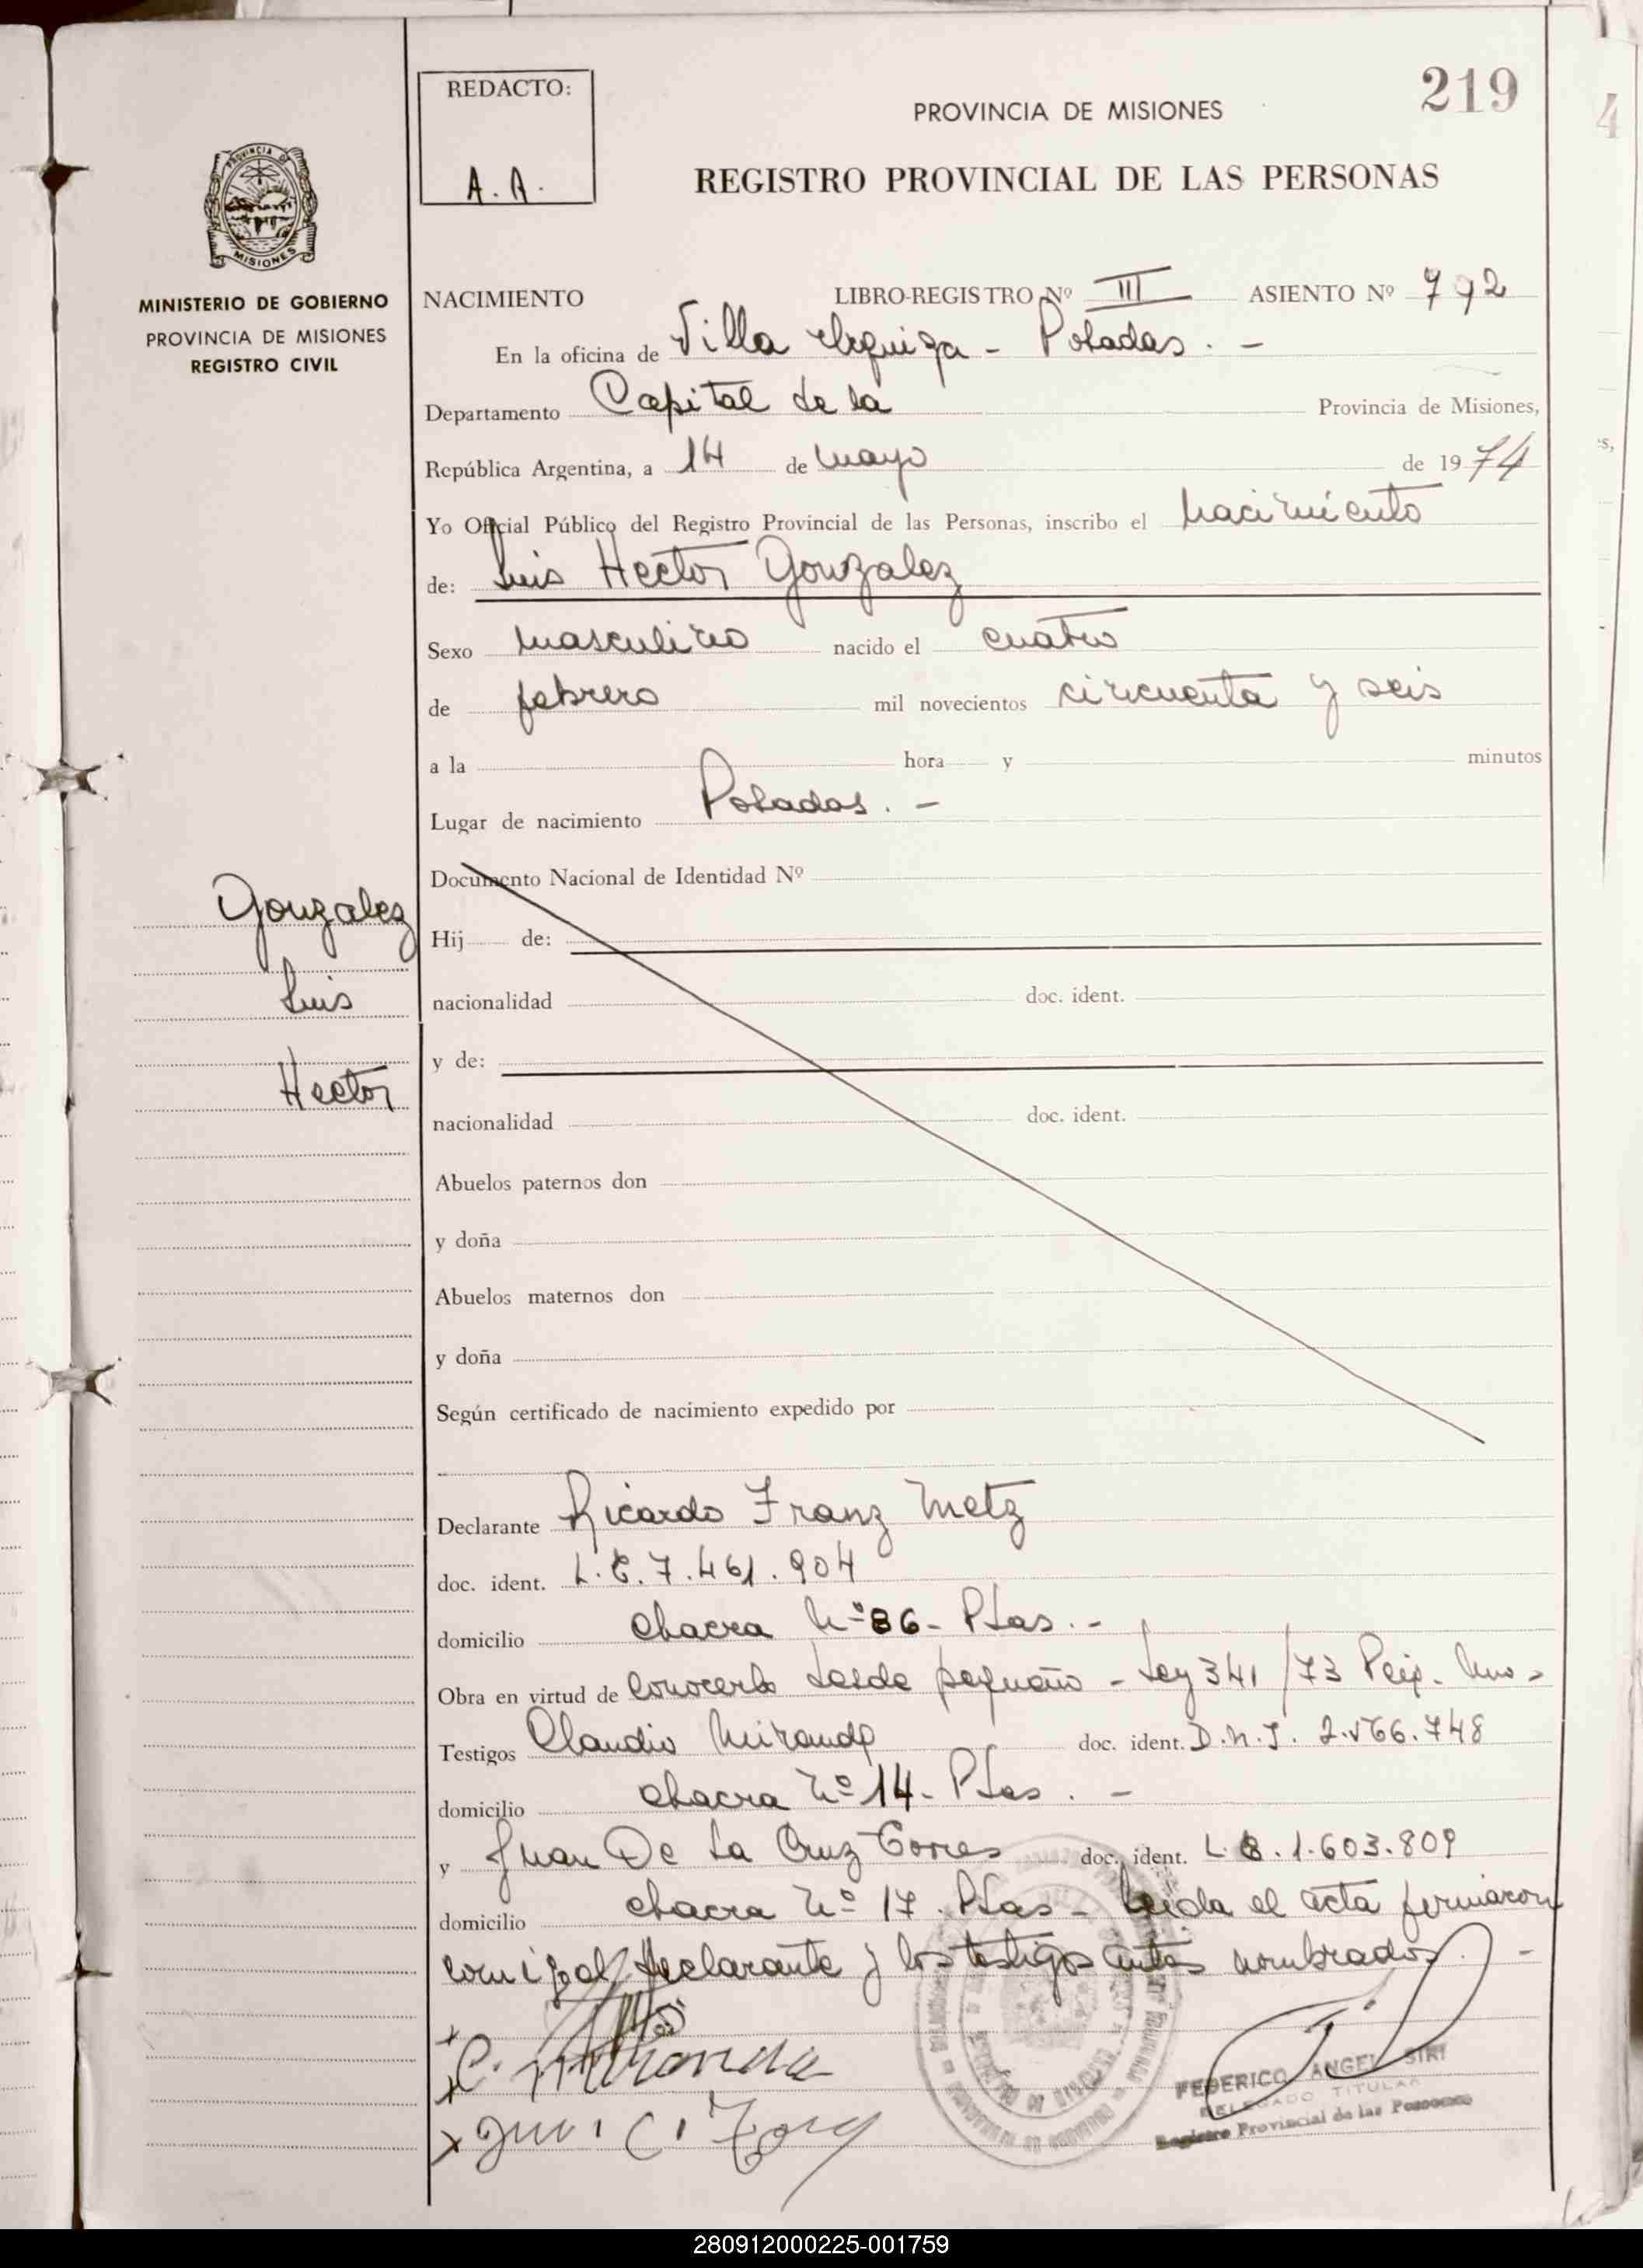 219
REDACTO:
A. A.
PROVINCIA DE MISIONES
REGISTRO PROVINCIAL DE LAS PERSONAS
PROVINCIA DE
MISIONES
MINISTERIO DE GOBIERNO
PROVINCIA DE MISIONES
REGISTRO CIVIL
NACIMIENTO LIBRO-REGISTRO Nº III ASIENTO Nº 792
En la oficina de Villa Urquiza - Posadas. -
Departamento Capital de la Provincia de Misiones,
República Argentina, a 14 de mayo de 1974
Yo Oficial Público del Registro Provincial de las Personas, inscribo el nacimiento
de: Luis Hector Gonzalez
Sexo masculino nacido el cuatro
de febrero mil novecientos cincuenta y seis
a la hora y minutos
Lugar de nacimiento Posadas. -
Documento Nacional de Identidad Nº
Gonzalez
Luis
Hector
Hij de:
nacionalidad doc. ident.
y de:
nacionalidad doc. ident.
Abuelos paternos don
y doña
Abuelos maternos don
y doña
Según certificado de nacimiento expedido por
Declarante Ricardo Franz Metz
doc. ident. L.E. 7.461.904
domicilio chacra Nº 86 - Pdas. -
Obra en virtud de conocerlo desde pequeño - Ley 341/73
Testigos Claudio Miranda doc. ident. D.N.I. 2.566.748
domicilio chacra Nº 14 - Pdas. -
y Juan De La Cruz Torres doc. ident. L.E. 1.603.809
domicilio chacra Nº 17. Pdas - Leida el acta firmaron
conmigo el declarante y los testigos antes nombrados. -
C. Miranda
FEDERICO ANGEL SIRI
DELEGADO TITULAR
Registro Provincial de las Personas
280912000225-001759